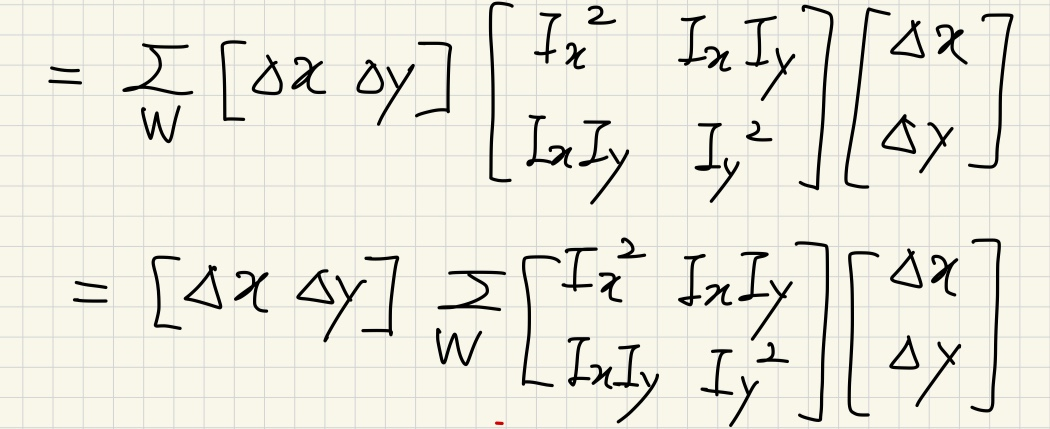 = \sum_{W} [\Delta x \ \Delta y] \begin{bmatrix} I_x^2 & I_x I_y \\ I_x I_y & I_y^2 \end{bmatrix} \begin{bmatrix} \Delta x \\ \Delta y \end{bmatrix}
= [\Delta x \ \Delta y] \sum_{W} \begin{bmatrix} I_x^2 & I_x I_y \\ I_x I_y & I_y^2 \end{bmatrix} \begin{bmatrix} \Delta x \\ \Delta y \end{bmatrix}